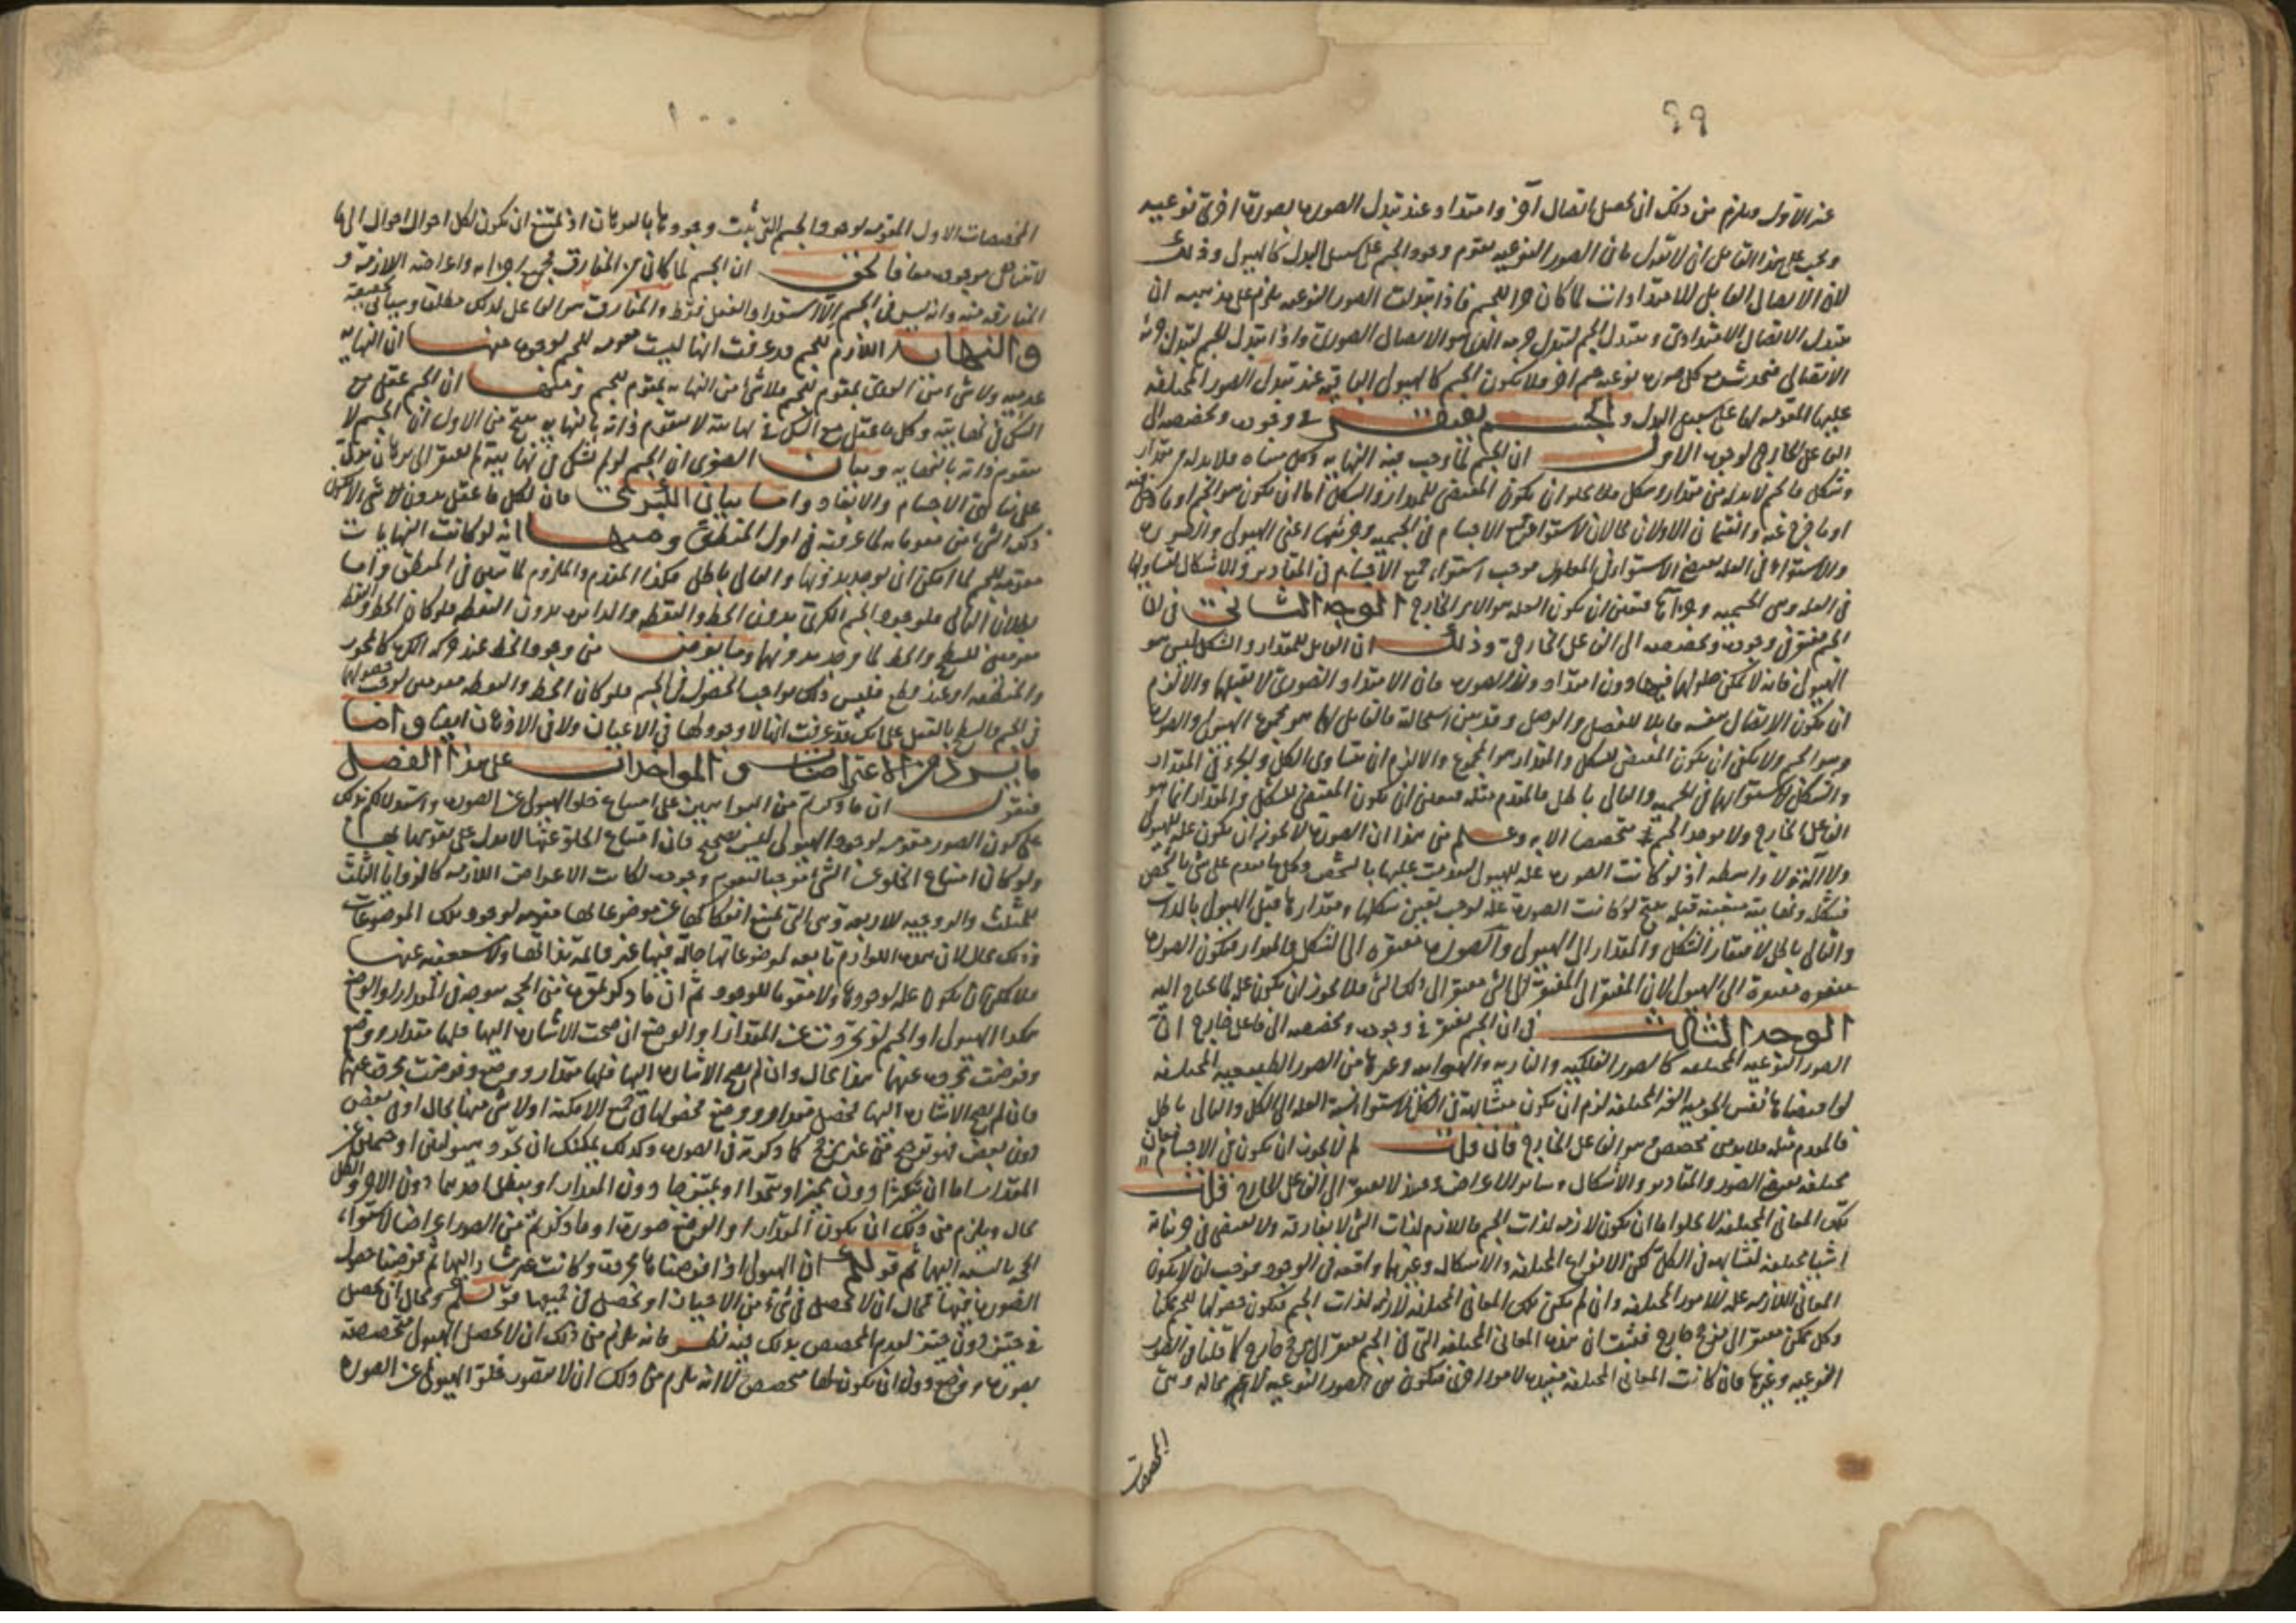 ٩٩
عند الأول ويلزم من ذلك ان يحصل اتصال آخر وامتداد عند تبدل الصورة بصورة اخرى نوعية
ويجب على هذا القائل ان لا تبدل فان الصور النوعية يقوم وجود الجسم على سبيل البدل كالهيولى وذلك
لان الاتصال القابل للامتدادات لما كان جزأ للجسم فاذا تبدلت الصور النوعية يلزم على مذهبه ان
يتبدل الاتصال الامتدادى ويتبدل الجسم لتبدل جزئه الذى هو الاتصال الصورى واذا تبدل الجسم لتبدل جزئه
الاتصالى فيحدث مع كل صورة نوعية جسم آخر ولا يكون الجسم كالهيولى الباقية عند تبدل الصور المختلفة
عليها المقومة لها على سبيل البدل والجسم يفتقر فى وجوده وتخصصه الى
الفاعل الخارجى لوجوه الاول ان الجسم لما وجب فيه النهاية وكل متناه فلا بد له من مقدار
وشكل فالجسم لا بد له من مقدار وشكل فلا يخلو ان يكون المقتضى للمقدار والشكل اما ان يكون هو الجسم او ما
او ما خرج عنه والقسمان الاولان محالان لاستواء جميع الاجسام فى الجسمية وجزئيها اعنى الهيولى والصورة
والاستواء فى العلة يقتضى الاستواء فى المعلول فوجب استواء جميع الاجسام فى المقادير والاشكال لتساويها
فى العلة وهى الجسمية وجزءاها فتعين ان يكون العلة هو الامر الخارج الوجه الثانى فى ان
الجسم مفتقر فى وجوده وتخصصه الى الفاعل الخارجى وذلك ان القابل للمقدار والشكل ليس هو
الهيولى فانه لا يمكن حلولهما فيها دون امتداد وتلك الصورة فان الامتداد الصورى لا يقبلهما والا لزم
ان يكون الاتصال نفسه قابلا للفصل والوصل وقد تبين استحالته فالقابل لهما هو مجموع الهيولى والصورة
وهو الجسم ولا يمكن ان يكون المقتضى للشكل والمقدار هو المجموع والا لزم ان يتساوى الكل والجزء فى المقدار
والشكل لاستوائهما فى الجسمية والتالى باطل فالمقدم مثله فتعين ان يكون المقتضى للشكل والمقدار انما هو
الفاعل الخارج ولا يوجد الجسم متخصصا الا به وعلم من هذا ان الصورة لا يجوز ان يكون علة للهيولى
ولا آلة ولا واسطة اذ لو كانت الصورة علة للهيولى لتقدمت عليها بالشخص وكل ما تقدم على شئ بالشخص
فشكله ونهايته متعينة قبله فلو كانت الصورة علة لوجب تعين شكلها ومقدارها قبل الهيولى بالذات
والتالى باطل لافتقار الشكل والمقدار الى الهيولى والصورة مفتقرة الى الشكل والمقدار فتكون الصورة
مفتقرة الى الهيولى لان المفتقر الى المفتقر الى الشئ مفتقر الى ذلك الشئ فلا يجوز ان يكون علة لما يحتاج اليه
الوجه الثالث فى ان الجسم يفتقر فى وجوده وتخصصه الى فاعل خارج ان
الصور النوعية المختلفة كالصور الفلكية والنارية والهوائية وغيرها من الصور الطبيعية المختلفة
لو اقتضاها نفس الجسمية الغير المختلفة لزم ان يكون متشابهة فى الكل لاستواء نسبة العلة الى الكل والتالى باطل
فالمقدم مثله فلا بد من مخصص هو الفاعل الخارج فان قلت لم لا يجوز ان يكون فى الاجسام معان
مختلفة تقتضى الصور والمقادير والاشكال وسائر الاعراض لا تفتقر الى الفاعل الخارج قلت
تلك المعانى المختلفة لا يخلو اما ان تكون لازمة لذات الجسم فاللازم لذات الشئ لا يفارقه ولا يقتضى فى جزئياته
اشياء مختلفة لتشابهه فى الكل لكن الانواع المختلفة والاشكال وغيرها واقعة فى الوجود فوجب ان لا يكون
المعانى اللازمة علة للامور المختلفة وان لم تكن تلك المعانى المختلفة لازمة لذات الجسم فتكون حصولها للجسم ممكنا
وكل ممكن مفتقر الى مرجح خارج فثبت ان هذه المعانى المختلفة التى فى الجسم تفتقر الى مرجح خارج كما قلنا فى الصور
النوعية وغيرها فان كانت المعانى المختلفة مفيدة لامور اخرى فتكون من الصور النوعية لا محالة وهى
المخصصات
١٠٠
المخصصات الاول المقومة لوجود الجسم التى ثبت وجودها بالبرهان اذ يمتنع ان يكون لكل احوال احوال الى ما
لا يتناهى موجودة معا فالحق ان الجسم لما كان من المفارق بجميع اجزائه واعراضه اللازمة و
المفارقة منه وانه ليس فى الجسم الا الاستعداد والقبول فقط والمفارق هو الفاعل لذلك مطلقا وسيأتى تحقيقه
والنهاية اللازم للجسم وقد عرفت انها ليست مقومة للجسم لوجوه منها ان النهاية
عدمية ولا شئ من العدمى بمقوم للجسم فلا شئ من النهاية بمقوم للجسم ومنها ان الجسم عقل مع
الشك فى نهايته وكل ما عقل مع الشك فى نهايته لا يتقوم ذاته بالنهاية ينتج من الاول ان الجسم لا
يتقوم ذاته بالنهاية وبيان الصغرى ان الجسم لو لم نشك فى نهايته لم نفتقر الى برهان يدل
على تناهى الاجسام والابعاد واما بيان الكبرى فان كل ما عقل بدون شئ لا يكون
ذلك الشئ من مقوماته لما عرفته فى اول المنطق ومنها انه لو كانت النهايات
مقومة للجسم لما امكن ان يوجد بدونها والتالى باطل فكذا المقدم والملزوم لما تبين فى المنطق واما
بطلان التالى فلوجود الجسم الكرى بدون الخط والنقطة والدائرة بدون النقطة فلو كان الخط والنقطة
مقومين للسطح والخط لما وجد بدونهما وما يفرض من وجود الخط عند حركة الكرة كالمحور
والمنطقة او عند قطع فليس ذلك بواجب الحصول فى الجسم فلو كان الخط والنقطة مقومين لوجب حصولهما
فى الجسم والسطح بالفعل على انك قد عرفت انها لا وجود لها فى الاعيان ولا فى الاذهان ايضا واما
ما يرد من الاعتراضات والمواخذات على هذا الفصل
فنقول ان ما ذكرتم من البراهين على امتناع خلو الهيولى عن الصورة واستدلالكم بذلك
على كون الصور مقومة لوجود الهيولى ليس بصحيح فان امتناع الخلو عنها لا يدل على تقومها بها
ولو كان امتناع الخلو عن الشئ موجبا لتقوم وجوده لكانت الاعراض اللازمة كالزوايا الثلث
للمثلث والزوجية للاربعة وهى التى يمتنع انفكاكها عن موضوعاتها مقومة لوجود تلك الموضوعات
وذلك محال لان هذه اللوازم تابعة لموضوعاتها حالة فيها غير قائمة بذاتها
فلا يمكن ان يكون علة لوجودها ولا مقوما للوجود ثم ان ما ذكرتموه من الحجة متوجه فى المقدار والوضع
هكذا الهيولى او الجسم لو تجردت عن المقدار او الوضع ان صحت الاشارة اليها فلها مقدار ووضع
وفرضت مجردة عنهما هذا محال وان لم يصح الاشارة اليها فلها مقدار ووضع وفرضت مجردة عنها
فان لم يصح الاشارة اليها فحصل مقدار ووضع فحصولها فى جميع الامكنة اولا شئ منها محال او فى بعض
دون بعض فهو ترجيح من غير مرجح كما ذكرتم فى الصورة وكذلك يمكنك ان تجرد
المقدار اما ان تتكثرا دون مميز او يتحدا او يمتزجا دون المقدار او يبطل احدهما دون الاخر والكل
محال ويلزم من ذلك ان يكون المقدار او الوضع صورة او ما ذكرتم من الصور اعراضا لاستواء
الحجة بالنسبة اليها ثم قولكم ان الهيولى اذا فرضناها مجردة وكانت غير مشار اليها ثم فرضنا حصول
الصورة فيها فمحال ان لا تحصل فى شئ من الاحياز او تحصل فى جميعها قول مسلم ومحال ان يحصل
فى حيز دون حيز لعدم المخصص بذلك فيه نظر فانه يلزم من ذلك ان لا تحصل الهيولى متخصصة
بصورة ووضع دون ان يكون لها مخصص لا انه يلزم من ذلك ان لا يتصور خلو الهيولى عن الصورة